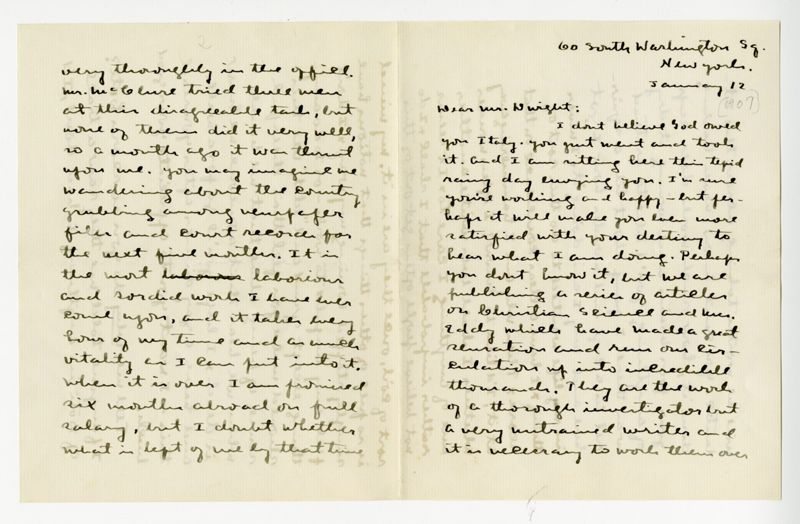 60 South Washington Sq.
New York.
January 12
[1907]
Dear Mr. Dwight:
I dont believe God owed
you Italy. You just went and took
it. And I am sitting here this tepid
rainy day envying you. I'm sure
you're working and happy - but per-
haps it will make you even more
satisfied with your destiny to
hear what I am doing. Perhaps
you dont know it, but we are
publishing a series of articles
on Christian Science and Mrs.
Eddy which have made a great
sensation and run our cir-
culation up into incredible
thousands. They are the work
of a thorough investigator but
a very untrained writer and
it is necessary to work them over
very thoroughly in the office.
Mr. McClure tried three men
at this disagreeable task, but
none of them did it very well,
so a month ago it was thrust
upon me. You may imagine me
wandering about the country
grubbing among newspaper
files and court records for
the next five months. It is
the most laborous laborious
and sordid work I have ever
come upon, and it takes every
hour of my time and as much
vitality as I can put into it.
When it is over I am promised
six months abroad on full
salary, but I doubt whether
what is left of me by that time